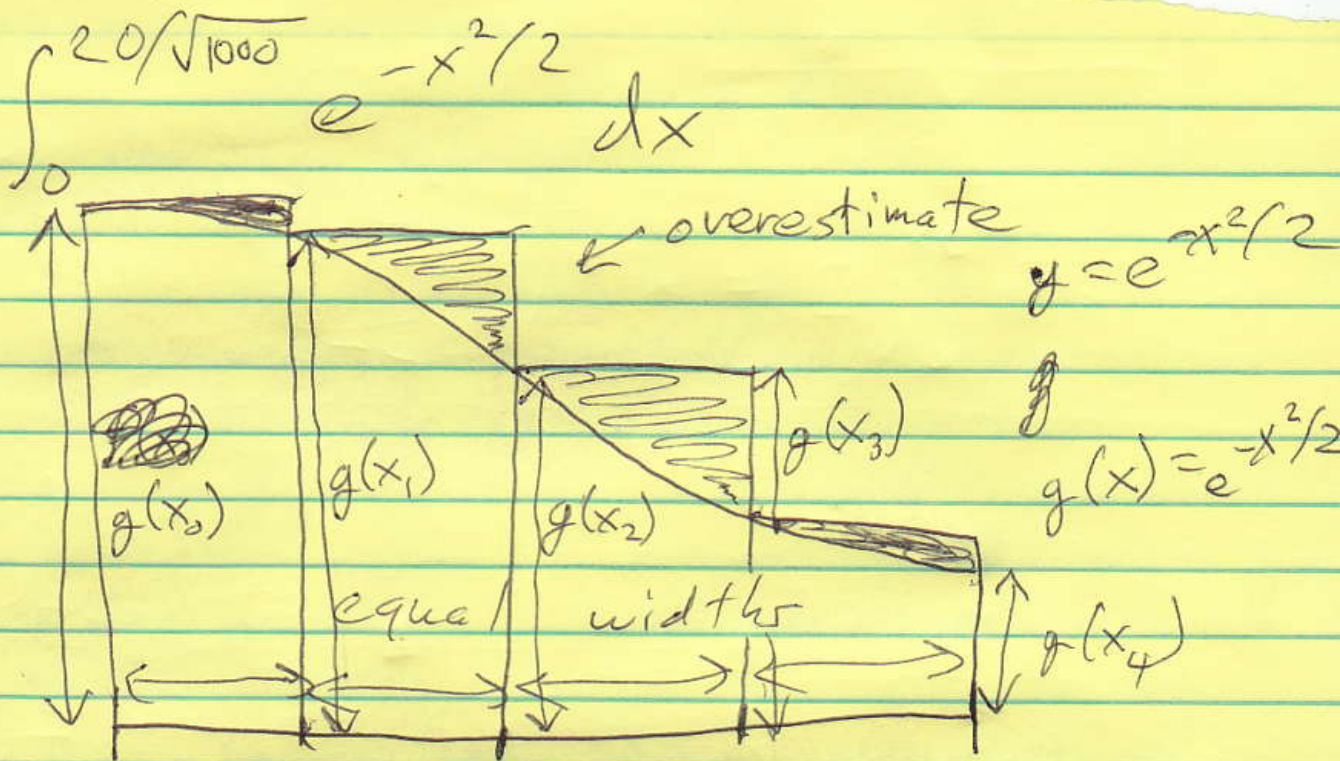 ∫₀^{20/√1000} e^{-x²/2} dx
overestimate
y = e^{-x²/2}
g
g(x) = e^{-x²/2}
g(x₀)
g(x₁)
g(x₂)
g(x₃)
equal widths
g(x₄)